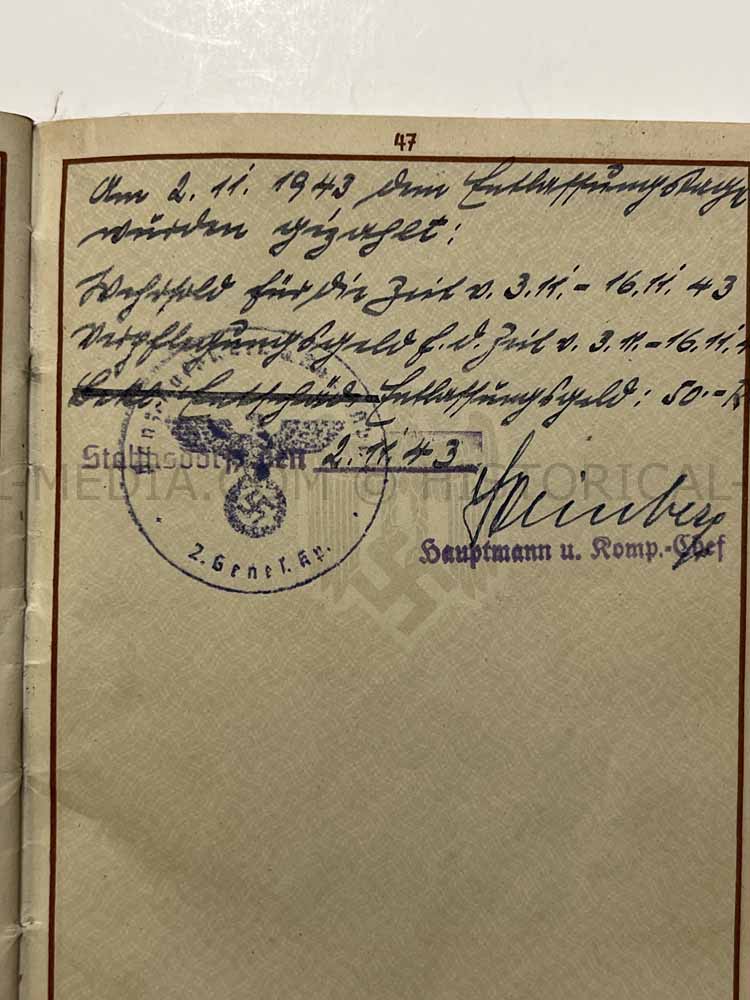 47
Am 2. 11. 1943 dem Entlassungstage
wurden gezahlt:
Wehrsold für die Zeit v. 3.11. – 16.11. 43
Verpflegungsgeld f. d. Zeit v. 3.11. – 16.11.
Entlassungsgeld: 50.–
den 2. 11. 43
2. Genes. Kp.
Hauptmann u. Komp.-Chef
-MEDIA.COM © HISTORICAL-